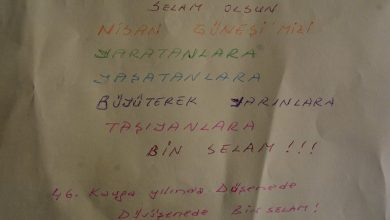 SELAM OLSUN
NİSAN GÜNEŞİ'MİZİ
YARATANLARA
YAŞATANLARA
BÜYÜTEREK YARINLARA
TAŞIYANLARA
BİN SELAM !!!
46. Kavga yılında Düşenede
Dövüşenede BİN SELAM !